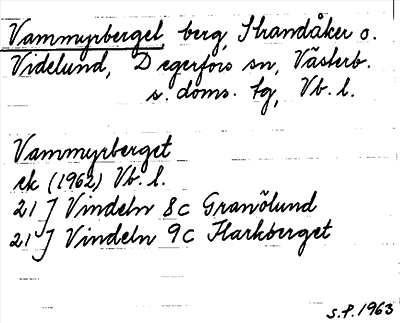 Vammyrberget, berg, Strandåker o.
Videlund, Degerfors sn, Västerb.
s. doms. tg, Vb. l.
Vammyrberget
ek (1962) Vb. l.
21 J Vindeln 8c Granölund
21 J Vindeln 9c Harkberget
S.P. 1963